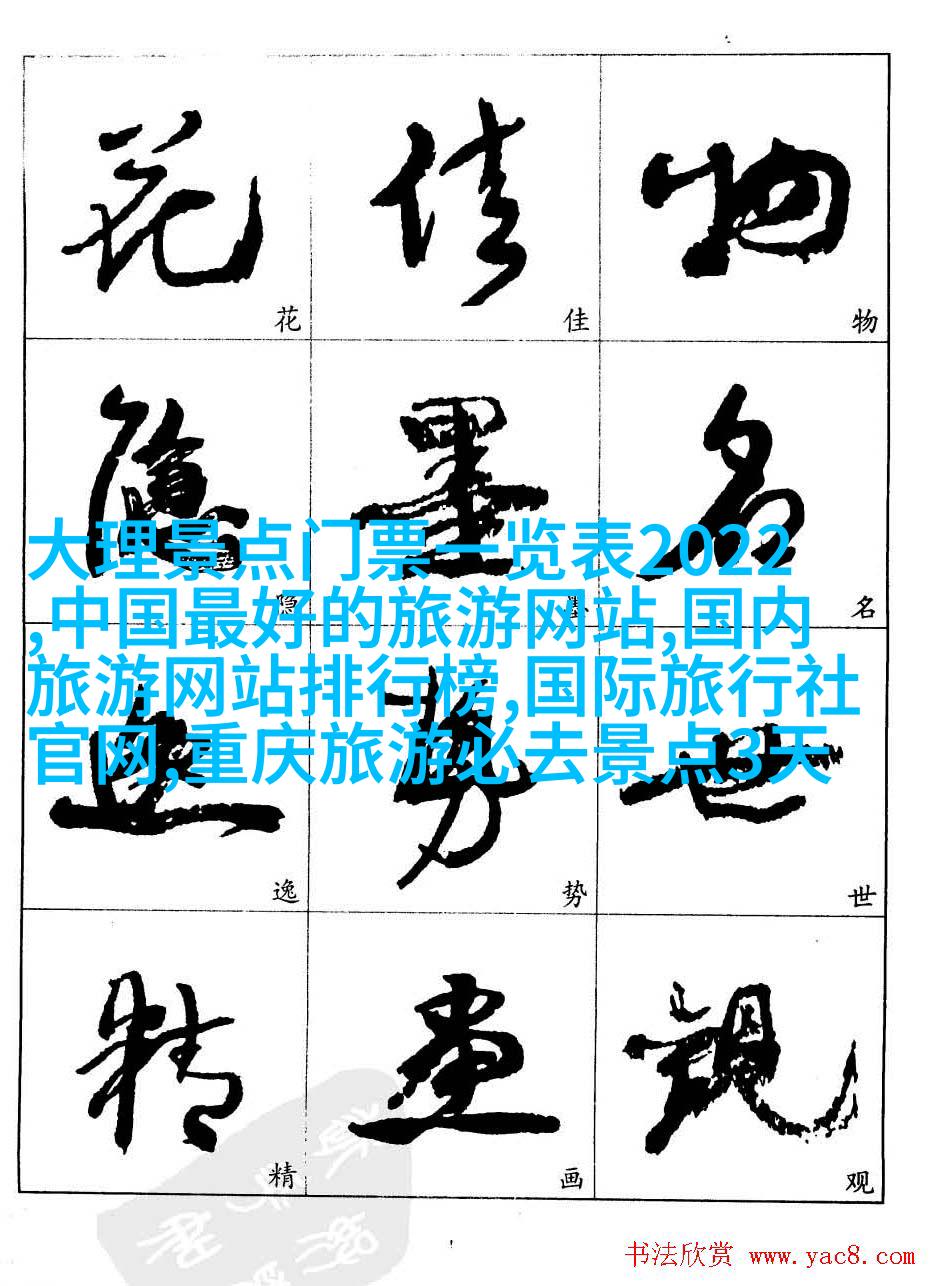 花 佳 物
花 佳 物
隐 墨 名
隐 墨 名
大理景点门票一览表2022
,中国最好的旅游网站,国内
旅游网站排行榜,国际旅行社
官网,重庆旅游必去景点3天
逸 势 世
逸 势 世
精 画 观
精 画 观
书法欣赏 www.yac8.com